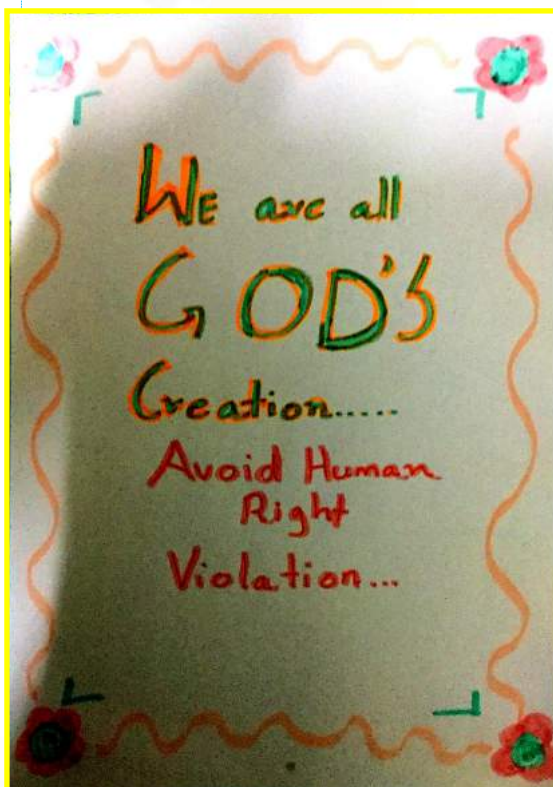 WE are all
GOD'S
Creation.....
Avoid Human
Right
Violation...